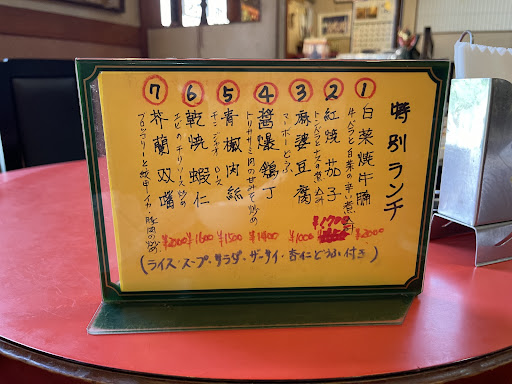 特別ランチ
① 白菜焼牛腩
牛バラと白菜の辛い煮
¥2000
② 紅焼茄子
トンバラとナスの煮込み
¥1700
③ 麻婆豆腐
マーボーどふ
¥1000
④ 醤爆鶏丁
トリササミ肉の甘みそ炒め
¥1400
⑤ 青椒肉絲
チンジャオロース
¥1500
⑥ 乾焼蝦仁
エビのチリソース炒め
¥1600
⑦ 芥蘭双
ブロッコリーと紋甲イカ・豚肉の炒め
¥2000
(ライス・スープ・サラダ・ザーサイ・杏仁どうふ付き)